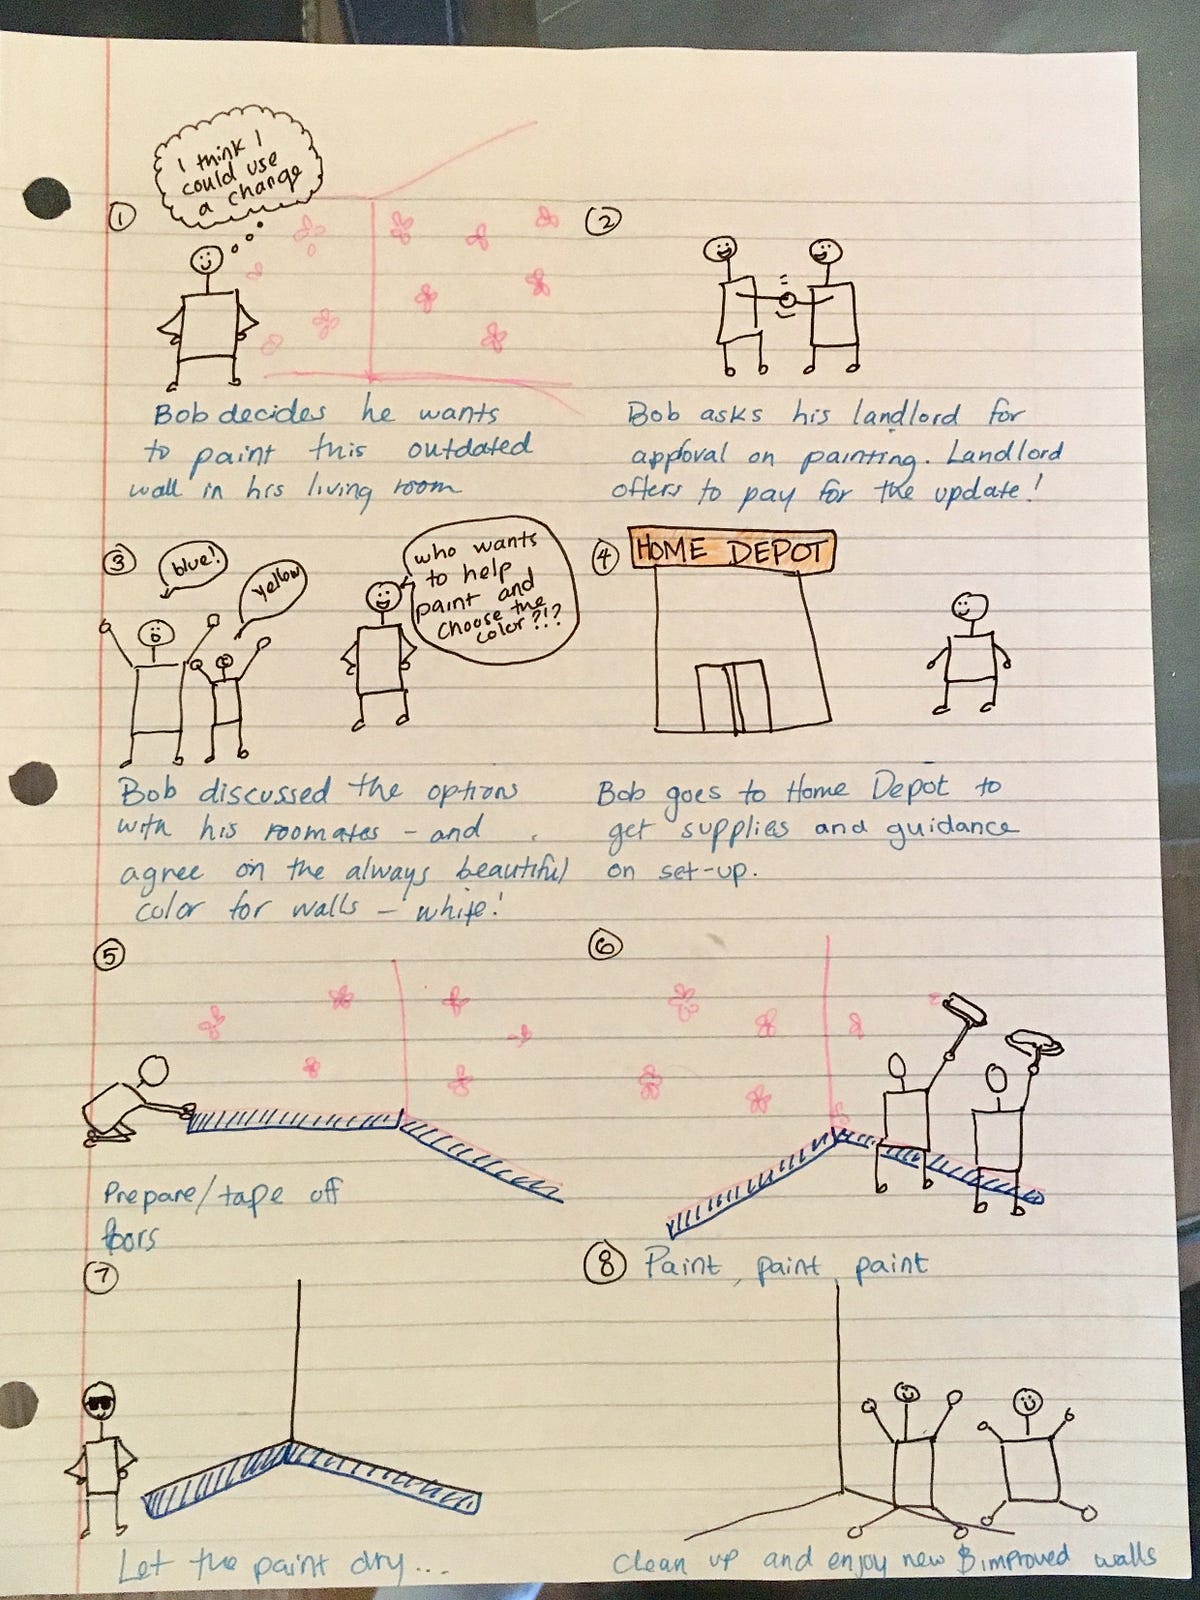 ①
I think I
could use
a change
Bob decides he wants
to paint this outdated
wall in his living room
②
Bob asks his landlord for
appoval on painting. Landlord
offers to pay for the update!
③
blue!
yellow
who wants
to help
paint and
choose the
color?!?
Bob discussed the options
with his roomates - and
agree on the always beautiful
color for walls - white!
④
HOME DEPOT
Bob goes to Home Depot to
get supplies and guidance
on set-up.
⑤
Prepare/tape off
floors
⑥
Paint, paint, paint
⑦
Let the paint dry...
⑧
Clean up and enjoy new & improved walls